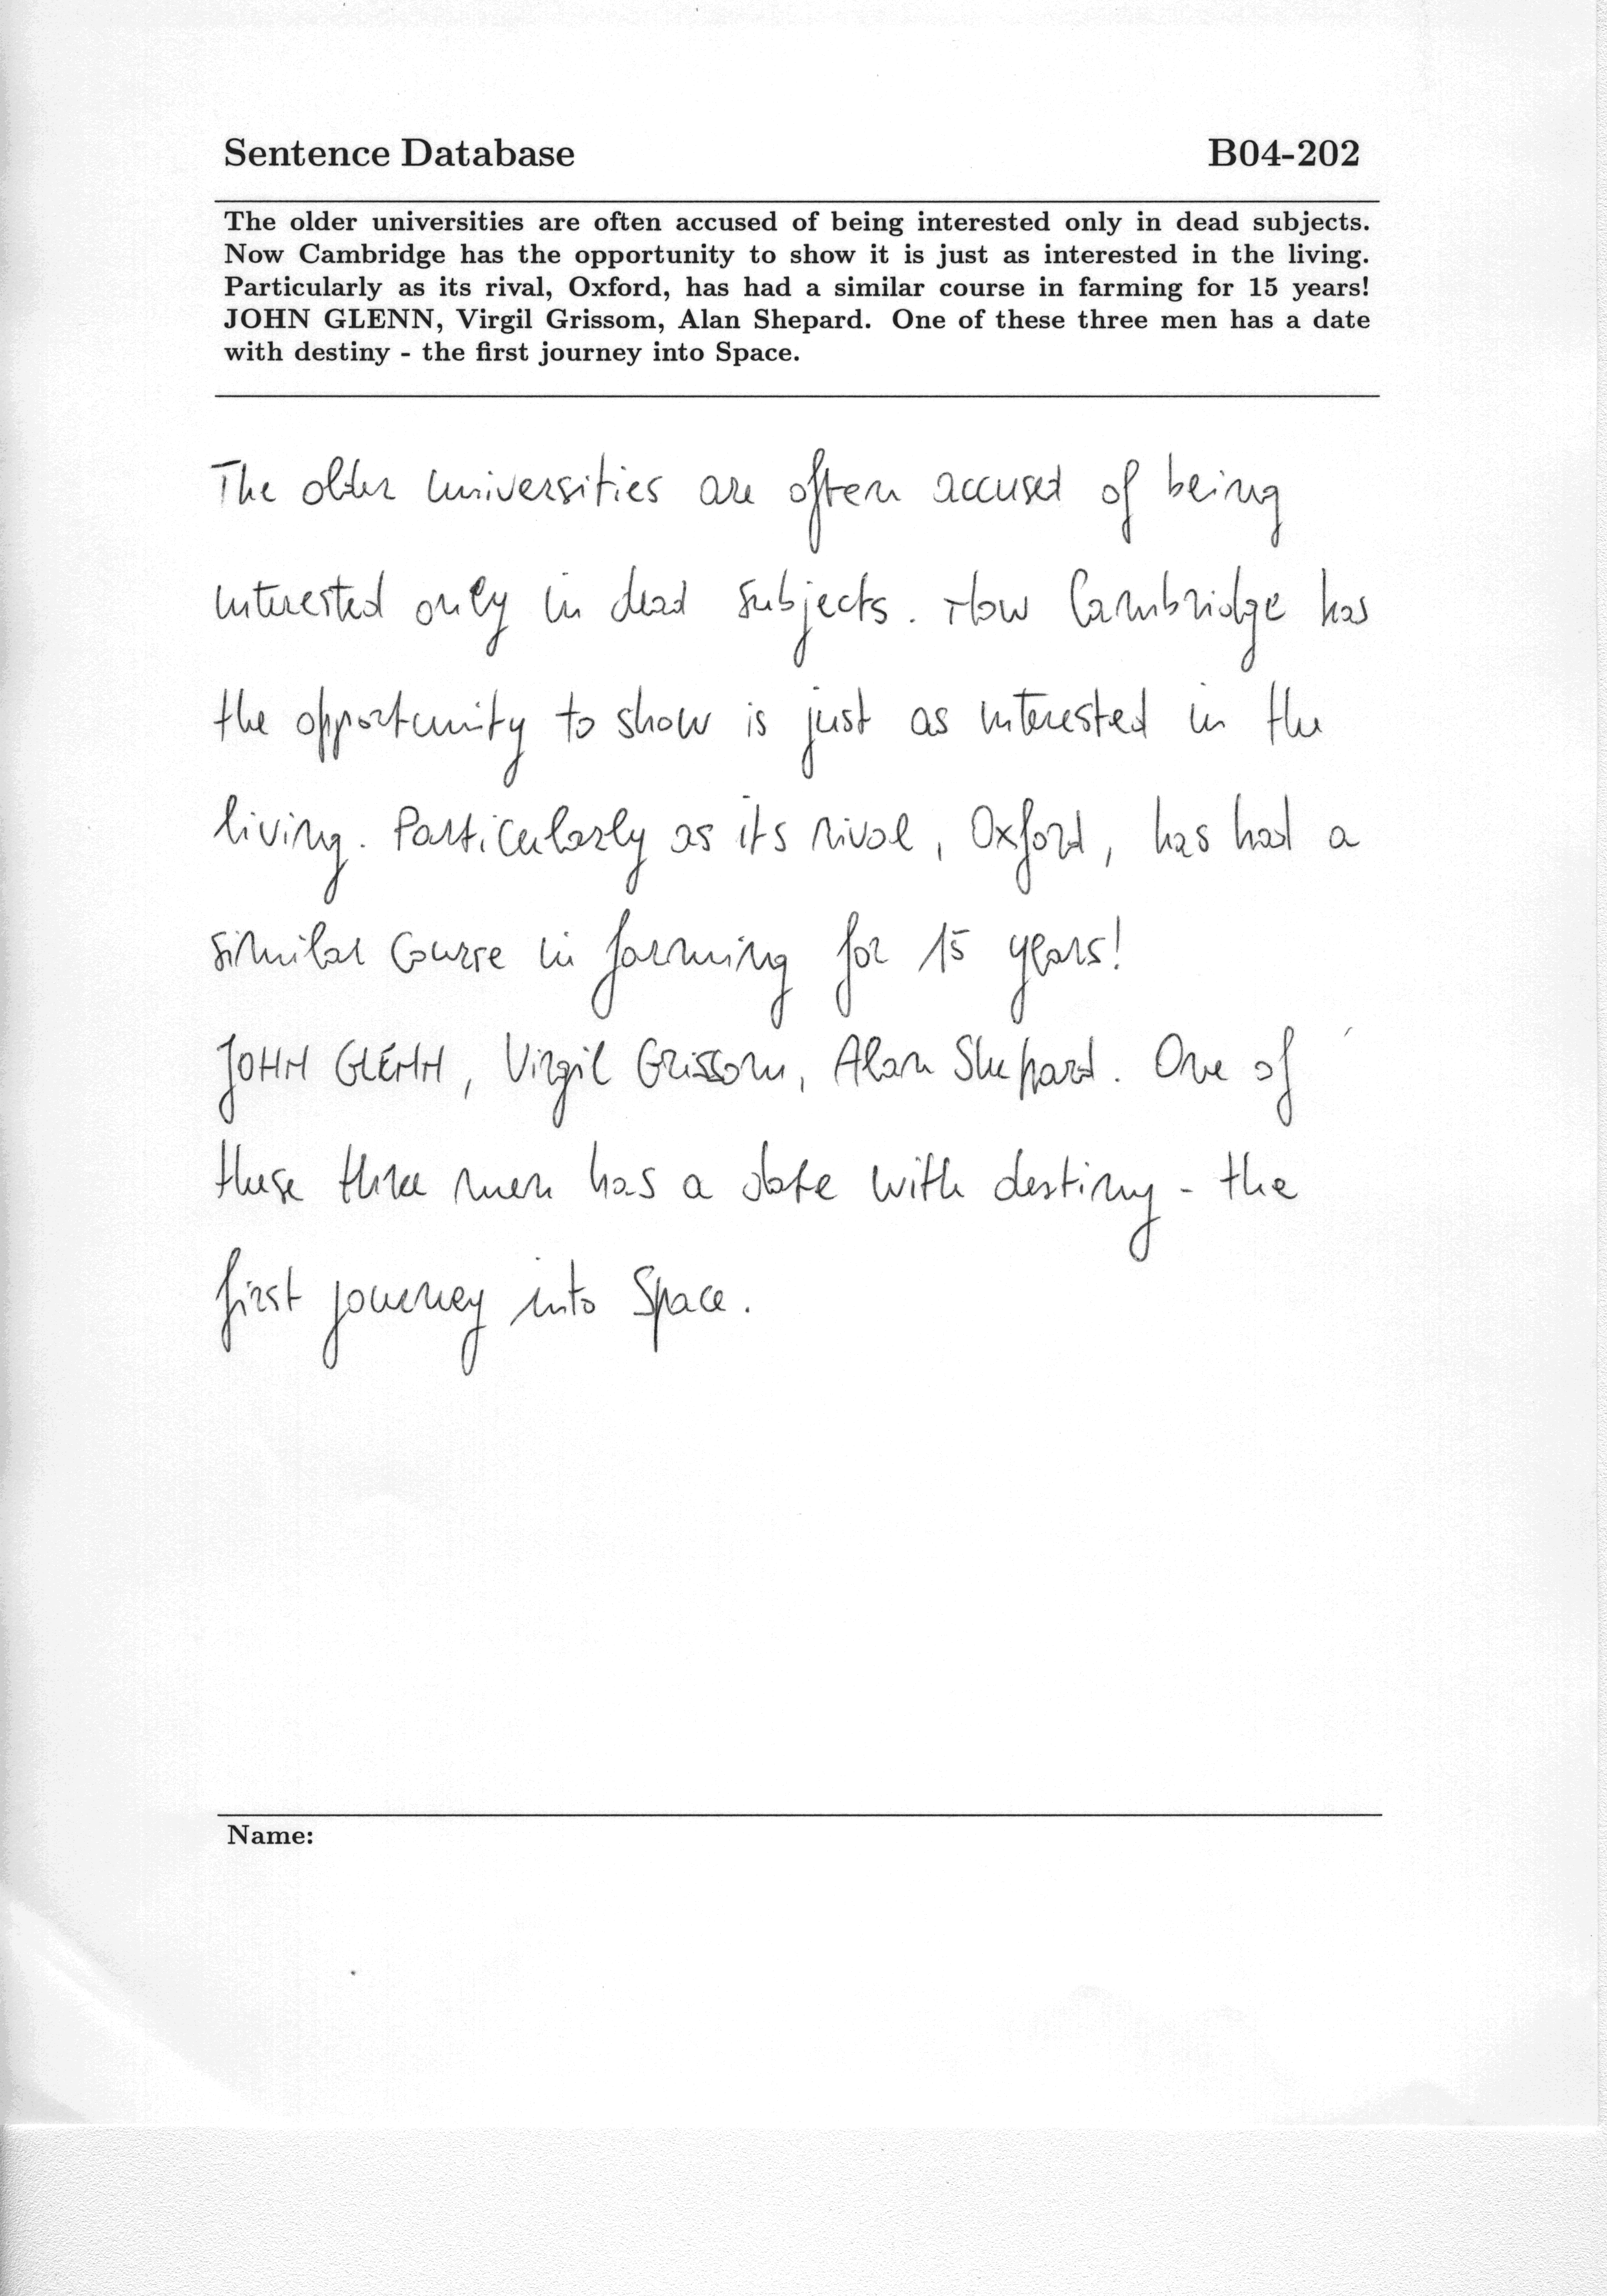 Sentence Database B04-202
The older universities are often accused of being interested only in dead subjects.
Now Cambridge has the opportunity to show it is just as interested in the living.
Particularly as its rival, Oxford, has had a similar course in farming for 15 years!
JOHN GLENN, Virgil Grissom, Alan Shepard. One of these three men has a date
with destiny - the first journey into Space.
The older universities are often accused of being
interested only in dead subjects. Now Cambridge has
the opportunity to show is just as interested in the
living. Particularly as its rival, Oxford, has had a
similar course in farming for 15 years!
JOHN GLENN, Virgil Grissom, Alan Shepard. One of
these three men has a date with destiny - the
first journey into Space.
Name: